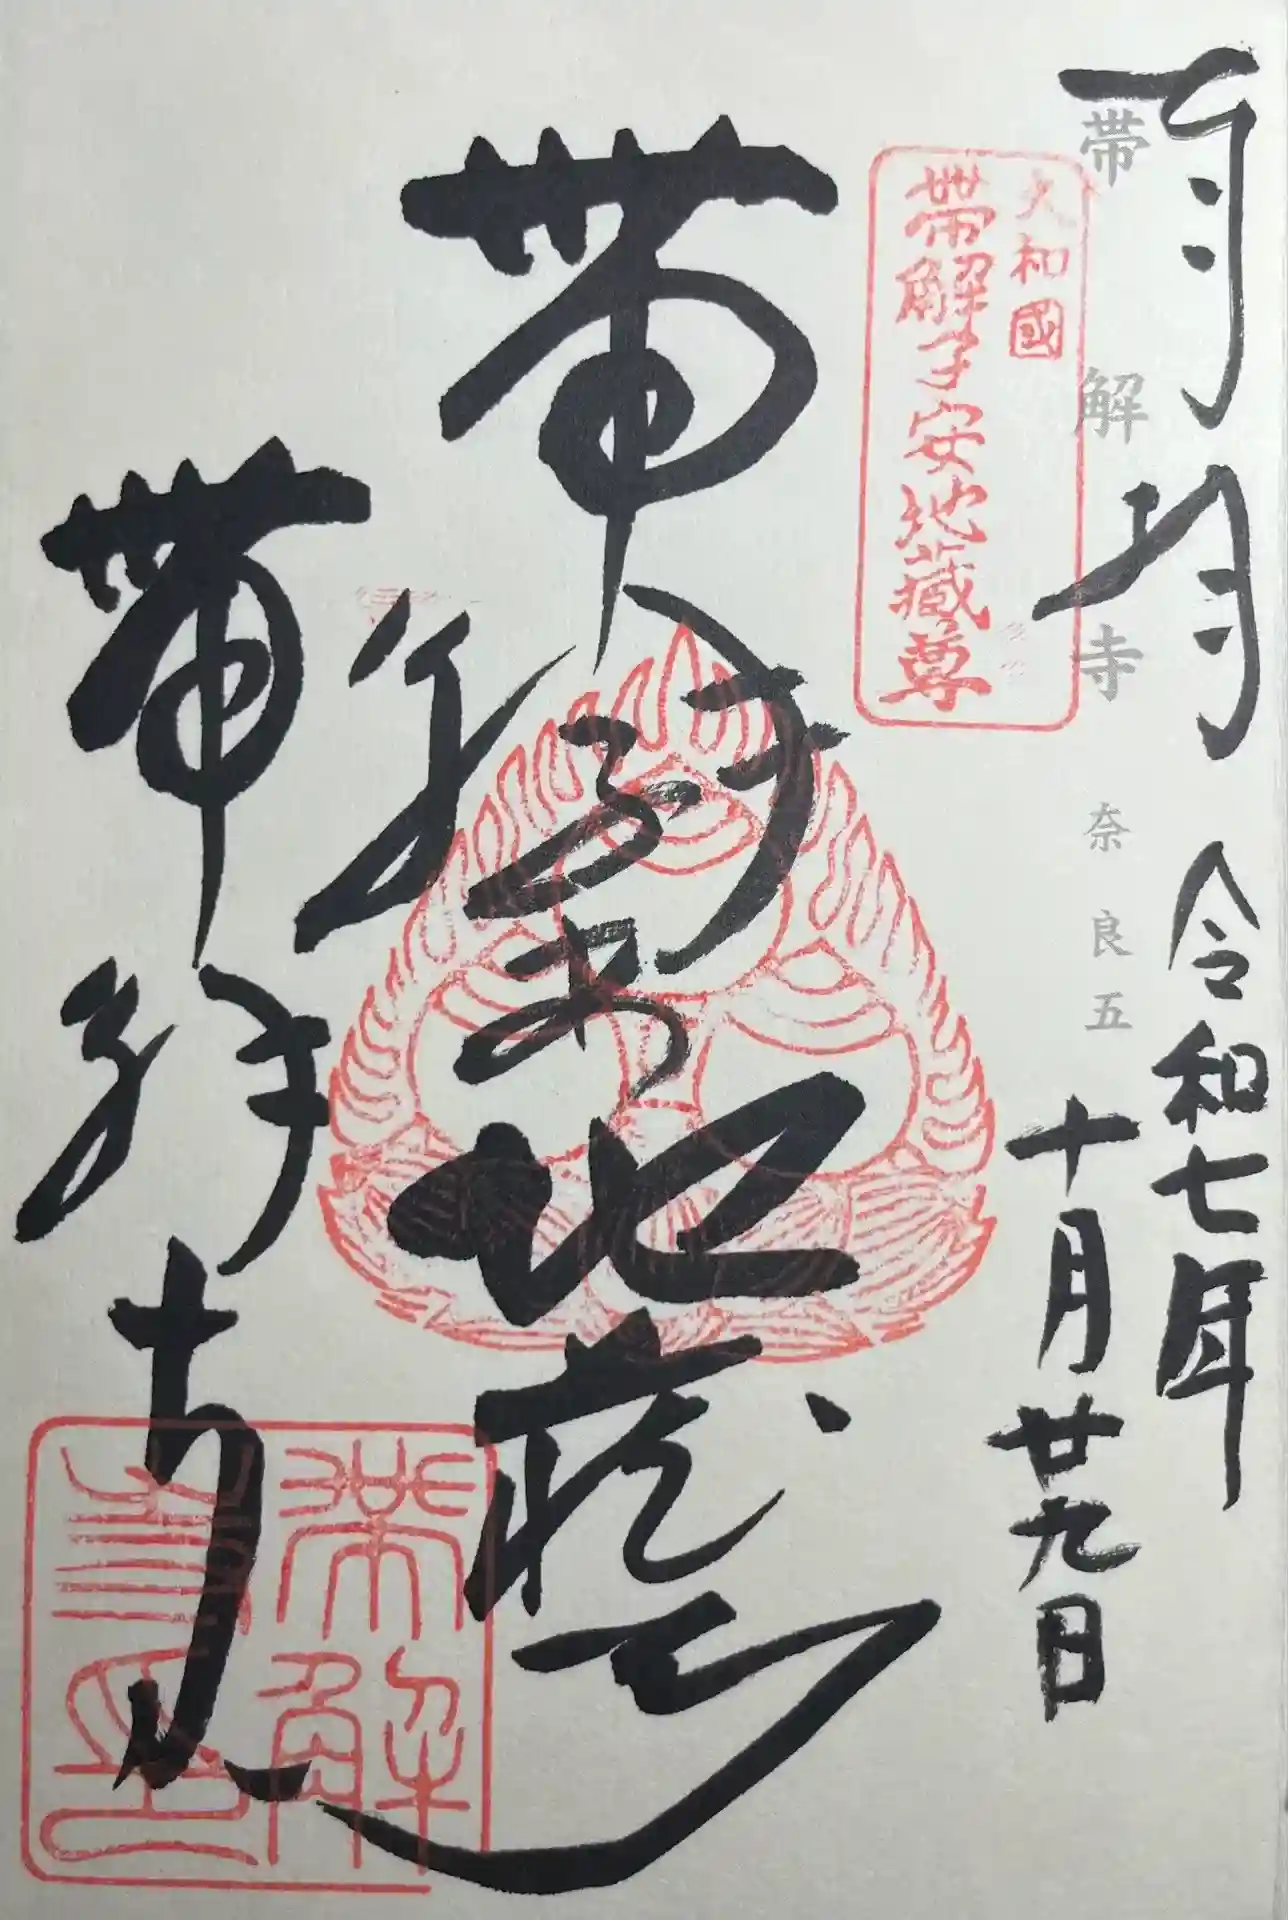 奉拝
令和七年
十月廿九日
帯解寺 奈良五
大和國
帯解子安地蔵尊
帯解子安地蔵
帯解寺
帯解
寺印